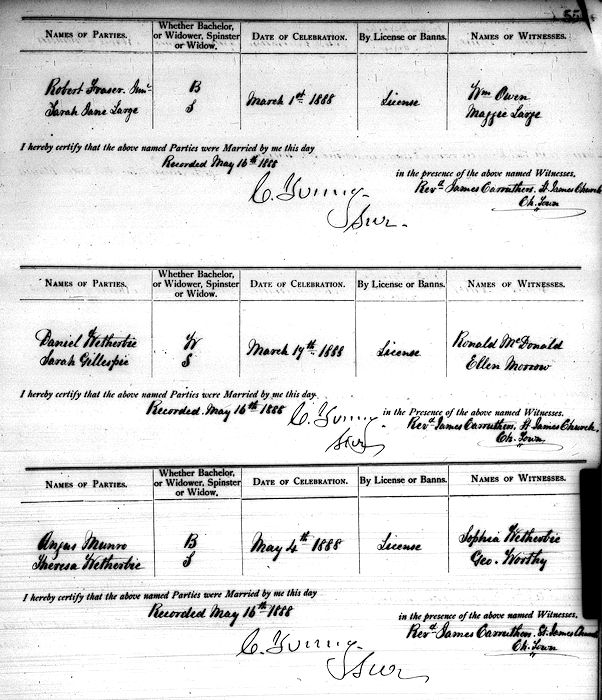 55
NAMES OF PARTIES. Whether Bachelor, or Widower, Spinster or Widow. DATE OF CELEBRATION. By License or Banns. NAMES OF WITNESSES.
Robert Fraser Junr. B March 1st 1888 License Wm Owen
Sarah Jane Large S Maggie Large
I hereby certify that the above named Parties were Married by me this day
Recorded May 16th 1888 in the presence of the above named Witnesses.
Revd. James Carruthers, St James Church
Ch. Town
NAMES OF PARTIES. Whether Bachelor, or Widower, Spinster or Widow. DATE OF CELEBRATION. By License or Banns. NAMES OF WITNESSES.
Daniel Wetherbie W March 17th 1888 License Ronald McDonald
Sarah Gillespie S Ellen Morrow
I hereby certify that the above named Parties were Married by me this day
Recorded May 16th 1888 in the Presence of the above named Witnesses.
Revd. James Carruthers, St James Church,
Ch. Town
NAMES OF PARTIES. Whether Bachelor, or Widower, Spinster or Widow. DATE OF CELEBRATION. By License or Banns. NAMES OF WITNESSES.
Angus Munro B May 4th 1888 License Sophia Wetherbie
Theresa Wetherbie S Geo. Worthy
I hereby certify that the above named Parties were Married by me this day
Recorded May 16th 1888 in the presence of the above named Witnesses.
Revd. James Carruthers, St. James Church
Ch. Town